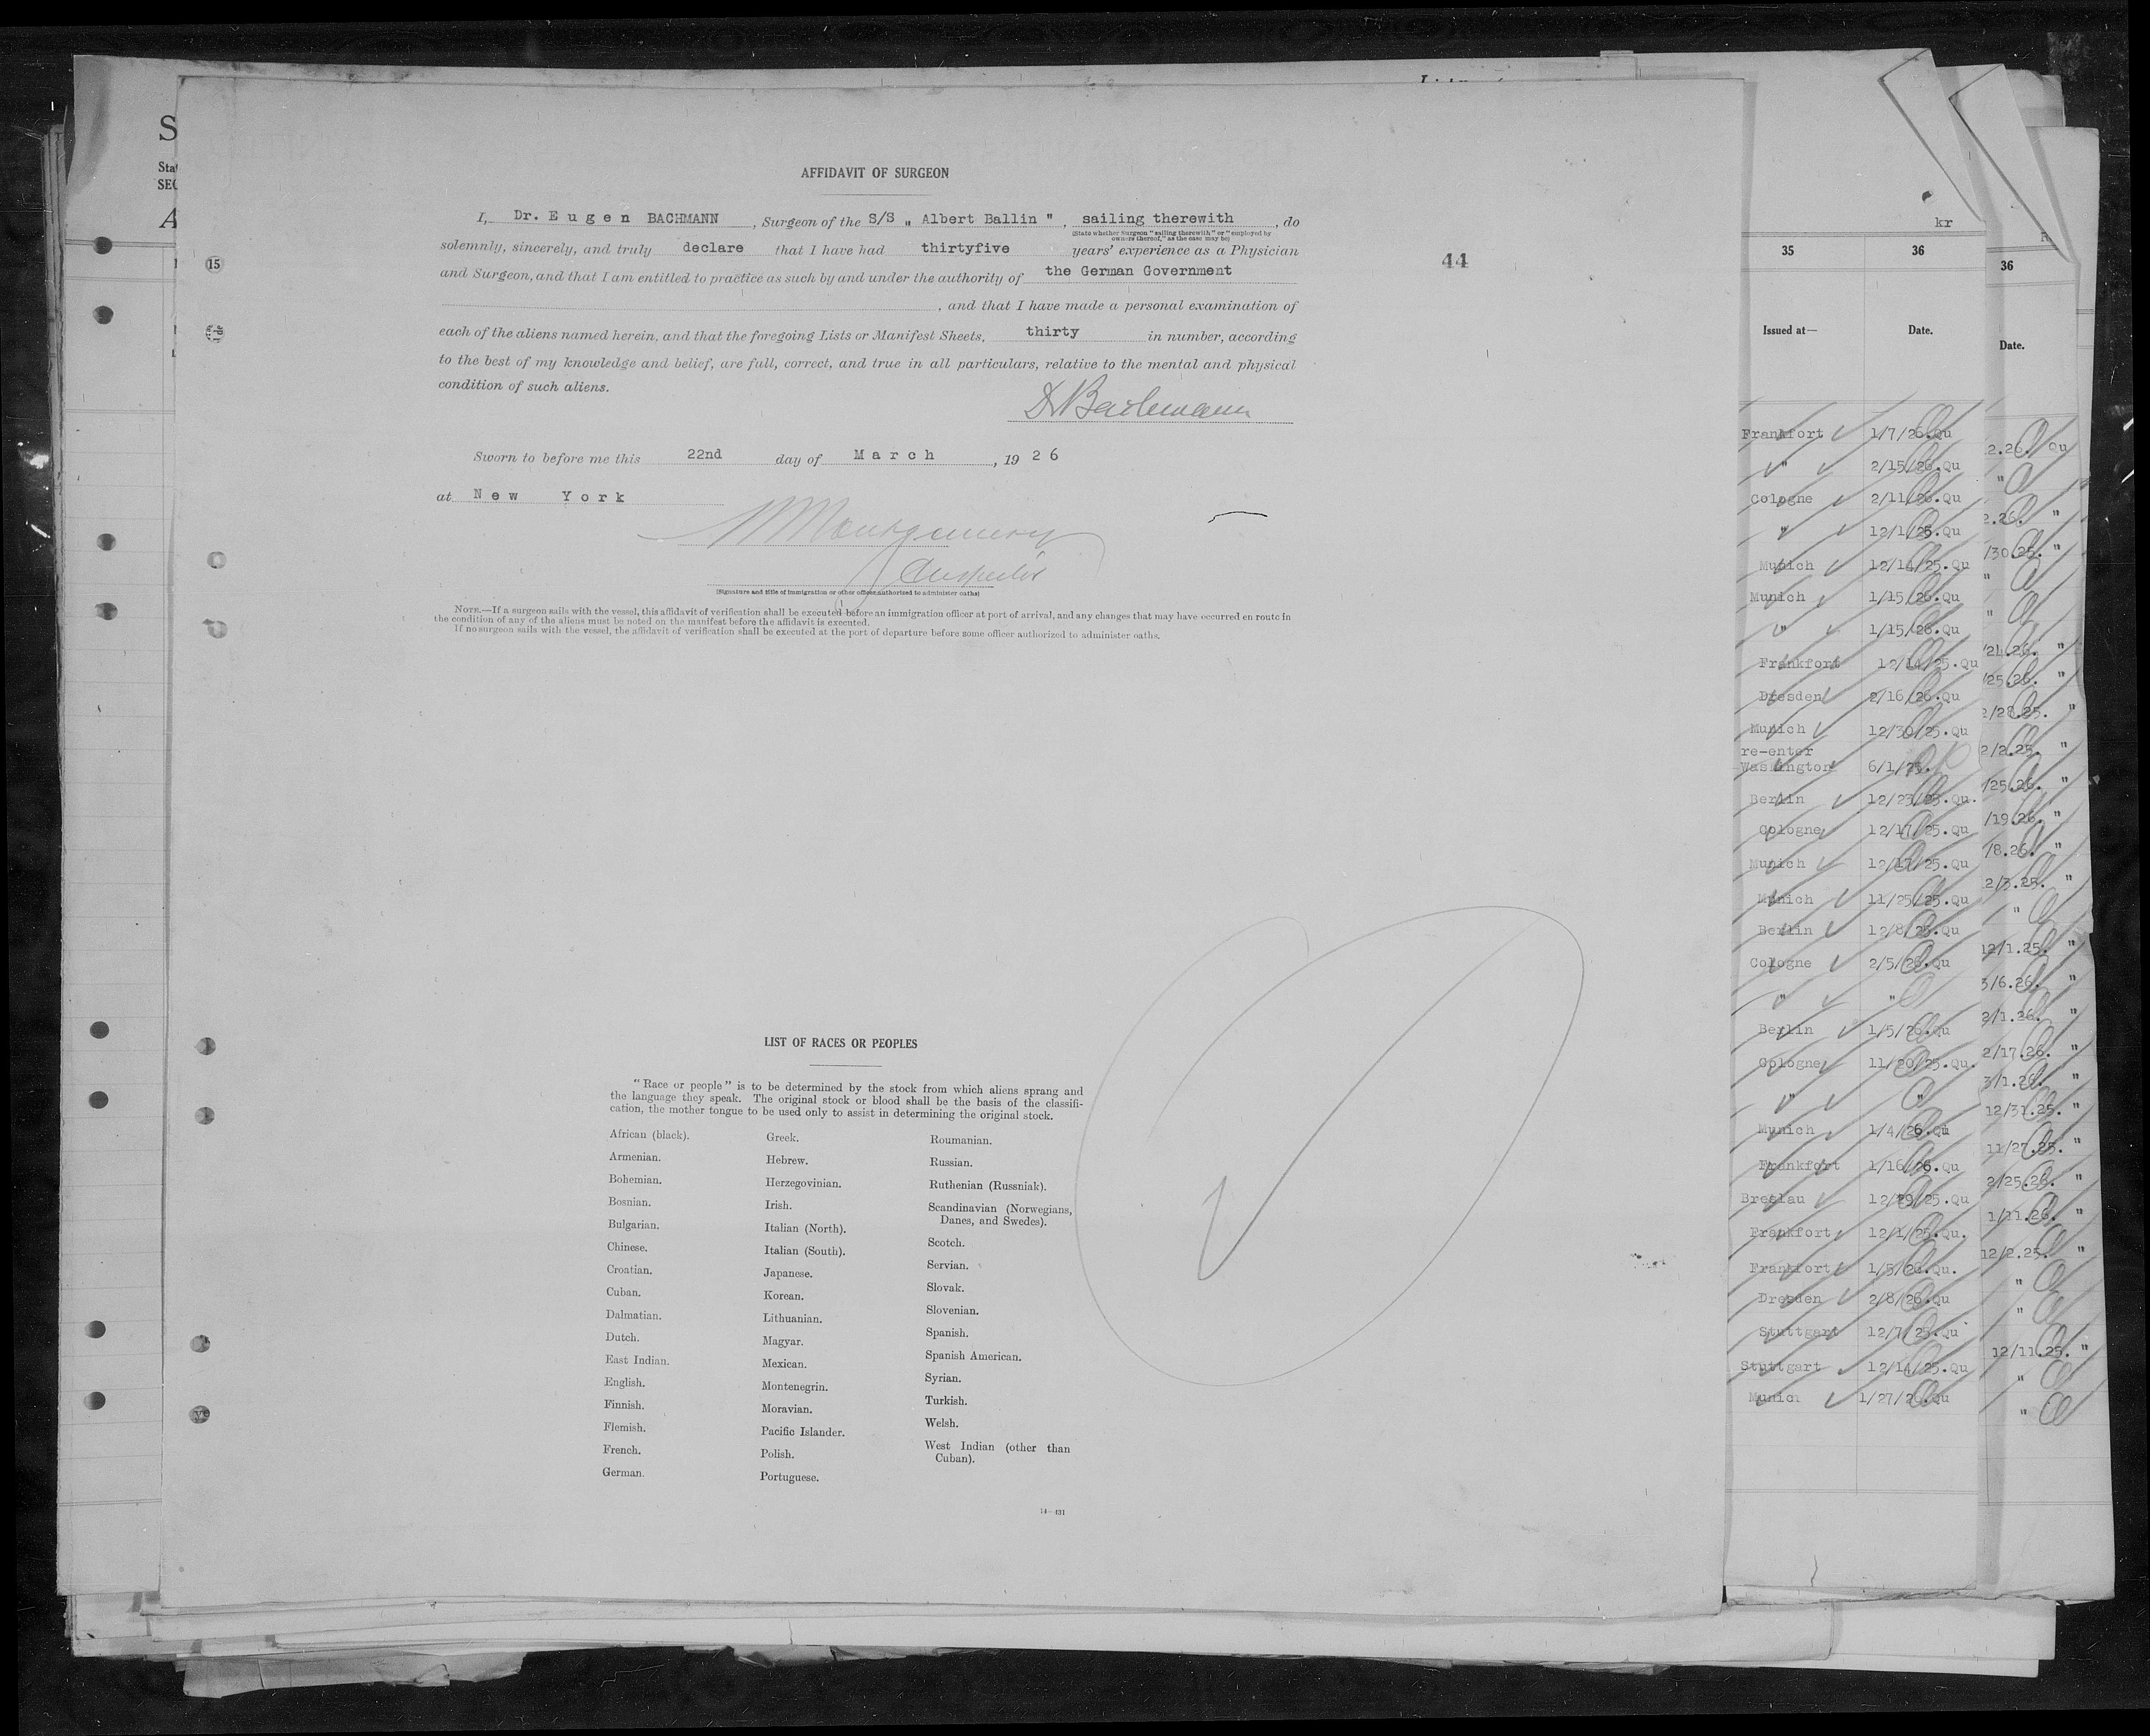 S
SEC
A
15
AFFIDAVIT OF SURGEON
I, Dr. Eugen BACHMANN, Surgeon of the S/S „ Albert Ballin ", sailing therewith, do
(State whether Surgeon "sailing therewith" or "employed by
owners thereof," as the case may be)
solemnly, sincerely, and truly declare that I have had thirtyfive years' experience as a Physician
and Surgeon, and that I am entitled to practice as such by and under the authority of the German Government
, and that I have made a personal examination of
each of the aliens named herein, and that the foregoing Lists or Manifest Sheets, thirty in number, according
to the best of my knowledge and belief, are full, correct, and true in all particulars, relative to the mental and physical
condition of such aliens.
Dr Bachmann
Sworn to before me this 22nd day of March, 19 26
at New York
Montgomery
Inspector
(Signature and title of immigration or other officer authorized to administer oaths)
NOTE.—If a surgeon sails with the vessel, this affidavit of verification shall be executed before an immigration officer at port of arrival, and any changes that may have occurred en route in
the condition of any of the aliens must be noted on the manifest before the affidavit is executed.
If no surgeon sails with the vessel, the affidavit of verification shall be executed at the port of departure before some officer authorized to administer oaths.
44
LIST OF RACES OR PEOPLES
"Race or people" is to be determined by the stock from which aliens sprang and
the language they speak. The original stock or blood shall be the basis of the classifi-
cation, the mother tongue to be used only to assist in determining the original stock.
African (black).
Armenian.
Bohemian.
Bosnian.
Bulgarian.
Chinese.
Croatian.
Cuban.
Dalmatian.
Dutch.
East Indian.
English.
Finnish.
Flemish.
French.
German.
Greek.
Hebrew.
Herzegovinian.
Irish.
Italian (North).
Italian (South).
Japanese.
Korean.
Lithuanian.
Magyar.
Mexican.
Montenegrin.
Moravian.
Pacific Islander.
Polish.
Portuguese.
Roumanian.
Russian.
Ruthenian (Russniak).
Scandinavian (Norwegians,
Danes, and Swedes).
Scotch.
Servian.
Slovak.
Slovenian.
Spanish.
Spanish American.
Syrian.
Turkish.
Welsh.
West Indian (other than
Cuban).
14—431
kr
35 36
Issued at— Date.
Frankfort 1/7/26.Qu
" 2/15/26.Qu
Cologne 2/11/26.Qu
" 12/1/25.Qu
Munich 12/14/25.Qu
Munich 1/15/26.Qu
" 1/15/26.Qu
Frankfort 12/14/25.Qu
Dresden 2/16/26.Qu
Munich 12/30/25.Qu
re-enter
Washington 6/1/25.
Berlin 12/23/25.Qu.
Cologne 12/17/25.Qu
Munich 12/17/25.Qu
Munich 11/25/25.Qu
Berlin 12/8/25.Qu
Cologne 2/5/26.Qu
" "
Berlin 1/5/26.Qu
Cologne 11/20/25.Qu.
" "
Munich 1/4/26.Qu
Frankfort 1/16/26.Qu
Breslau 12/29/25.Qu
Frankfort 12/1/25.Qu.
Frankfort 1/5/26.Qu.
Dresden 2/8/26.Qu
Stuttgart 12/7/25.Qu
Stuttgart 12/14/25.Qu
Munich 1/27/26.Qu
36
Date.
2.26. Qu
"
2.26. "
/30.25. "
"
"
/21.26. "
/25.26. "
2/28.25. "
2/2.25. "
/25.26. "
/19.26. "
/8.26. "
2/3.25. "
"
12/1.25. "
3/6.26. "
2/1.26. "
2/17.26. "
3/1.26. "
12/31.25. "
11/27.25. "
2/25.26. "
1/11.26. "
12/2.25. "
"
"
12/11.25. "
"
"